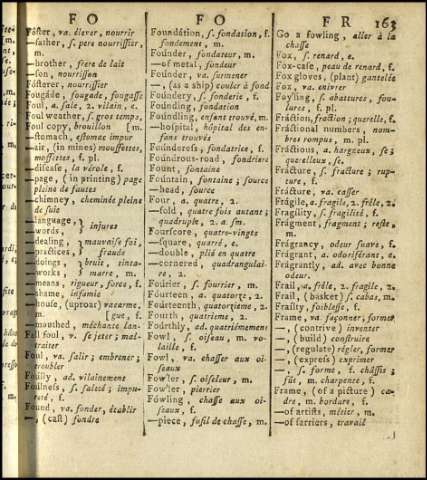 FO
Fóster, va. élever, nourrir
—father, s. pere nourrissier,
m.
—brother, frere de lait
—son, nourrisson
Fósterer, nourrissier
Fougáde, fougade, fougasse
Foul, a. sale, 2. vilain, e.
Foul weather, s. gros temps,
Foul copy, brouillon [m.
—stomach, estomac impur
—air, (in mines) mouffettes,
moffettes, f. pl.
—disease, la vérole, f.
—page, (in printing) page
pleine de fautes
—chimney, cheminée pleine
de suie
—language,
—words, } injures
—dealing, } mauvaise foi,
—practices, } fraude
—doings, } bruit, tinta-
—works, } marre, m.
—means, rigueur, force, f.
—shame, infamie
—houle, (uproar) vacarme,
m. [gue, f.
—mouthed, méchante lan-
Fall foul, v. se jeter; mal-
traiter
Foul, va. salir; embrener;
troubler
Foúlly, ad. vilainement
Foúlness, s. saleté; impu-
reté, f.
Found, va. fonder, établir
—, (cast) fondre
FO
Foundátion, s. fondation, f.
fondement, m.
Foúnder, fondateur, m.
—of metal, fondeur
Foúnder, va. surmener
—, (as a ship) couler à fond
Foúndery, s. fonderie, f.
Foúnding, fondation
Foúndling, enfant trouvé, m.
—hospital, hôpital des en-
fans trouvés
Foúnderess, fondatrice, f.
Foúndrous-road, fondriere
Fount, fontaine
Foúntain, fontaine; source
—head, source
Four, a. quatre, 2.
—fold, quatre fois autant;
quadruple, 2. a. &m.
Foúrscore, quatre-vingts
—square, quarré, e.
—double, plié en quatre
—cornered, quadrangulai-
re, 2.
Foúrier, s. fourrier, m.
Foúrteen, a. quatorze, 2.
Fourteenth, quatorzieme, 2.
Fourth, quatrieme, 2.
Foúrthly, ad. quatriémement
Fowl, s. oiseau, m. vo-
laille, f.
Fowl, va. chasser aux oi-
seaux
Fowler, s. oiseleur, m.
Fowler, pierrier
Fówling, chasse aux oi-
seaux, f.
—piece, fusil de chasse, m.
FR 163
Go a fowling, aller à la
chasse
Fox, s. renard, e.
Fox-case, peau de renard, f.
Fox gloves, (plant) gantelée
Fox, va. enivrer
Foysling, s. abatures, fou-
lures, f. pl.
Fráction, fraction; querelle, f.
Fráctional numbers, nom-
bres rompus, m. pl.
Fráctious, a. hargneux, se;
querelleux, se.
Frácture, s. fracture; rup-
ture, f.
Frácture, va. casser
Frágile, a. fragile, 2. frêle, 2.
Fragility, s. fragilité, f.
Frágment, fragment; reste,
m.
Frágrancy, odeur suave, f.
Frágrant, a. odoriférant, e.
Frágrantly, ad. avec bonne
odeur
Frail, a. frêle, 2. fragile, 2.
Frail, (basket) s. cabas, m.
Frailty, foiblesse, f.
Frame, va. façonner, former
—, (contrive) inventer
—, (build) construire
—, (regulate) régler, former
—, (express) exprimer
—, s. forme, f. châssis;
fût, m. charpente, f.
Frame, (of a picture) ca-
dre, m. bordure, f.
—of artists, métier, m.
—of farriers, travail